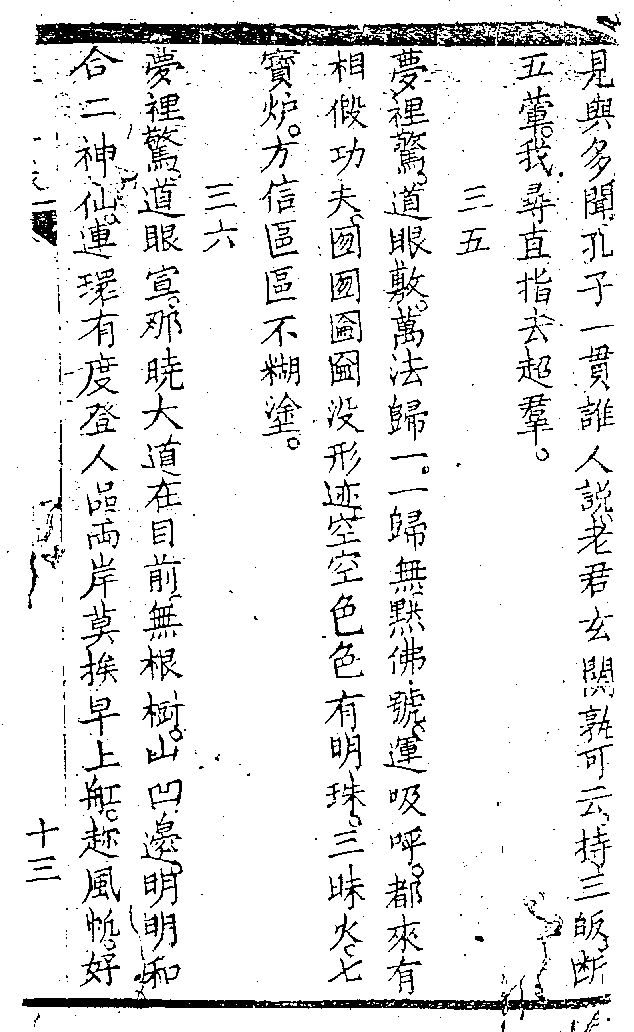 見與多聞。孔子一貫誰人說。老君玄關孰可云。持三皈。斷
五葷。我尋直指去超羣。
三五
夢裡驚。道眼敷。萬法歸一。一歸無。默佛號。運吸呼。都來有
相假功夫。囫囫圇圇没形迹。空空色色有明珠。三昧火。七
寶炉。方信區區不糊塗。
三六
夢裡驚。道眼宣。那曉大道在目前。無根樹。山凹邊。明明和
合二神仙。連環有度登人品。兩岸莫挨早上船。趂風帆。好
十三